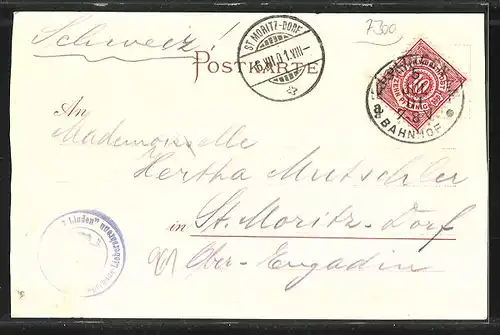 7300
Schweiz!
ST. MORITZ-DORF
POSTKARTE
BAHNHOF
An
Mademoiselle
Hertha Mutschler
in St. Moritz-Dorf
Ober-Engadin
Linden"